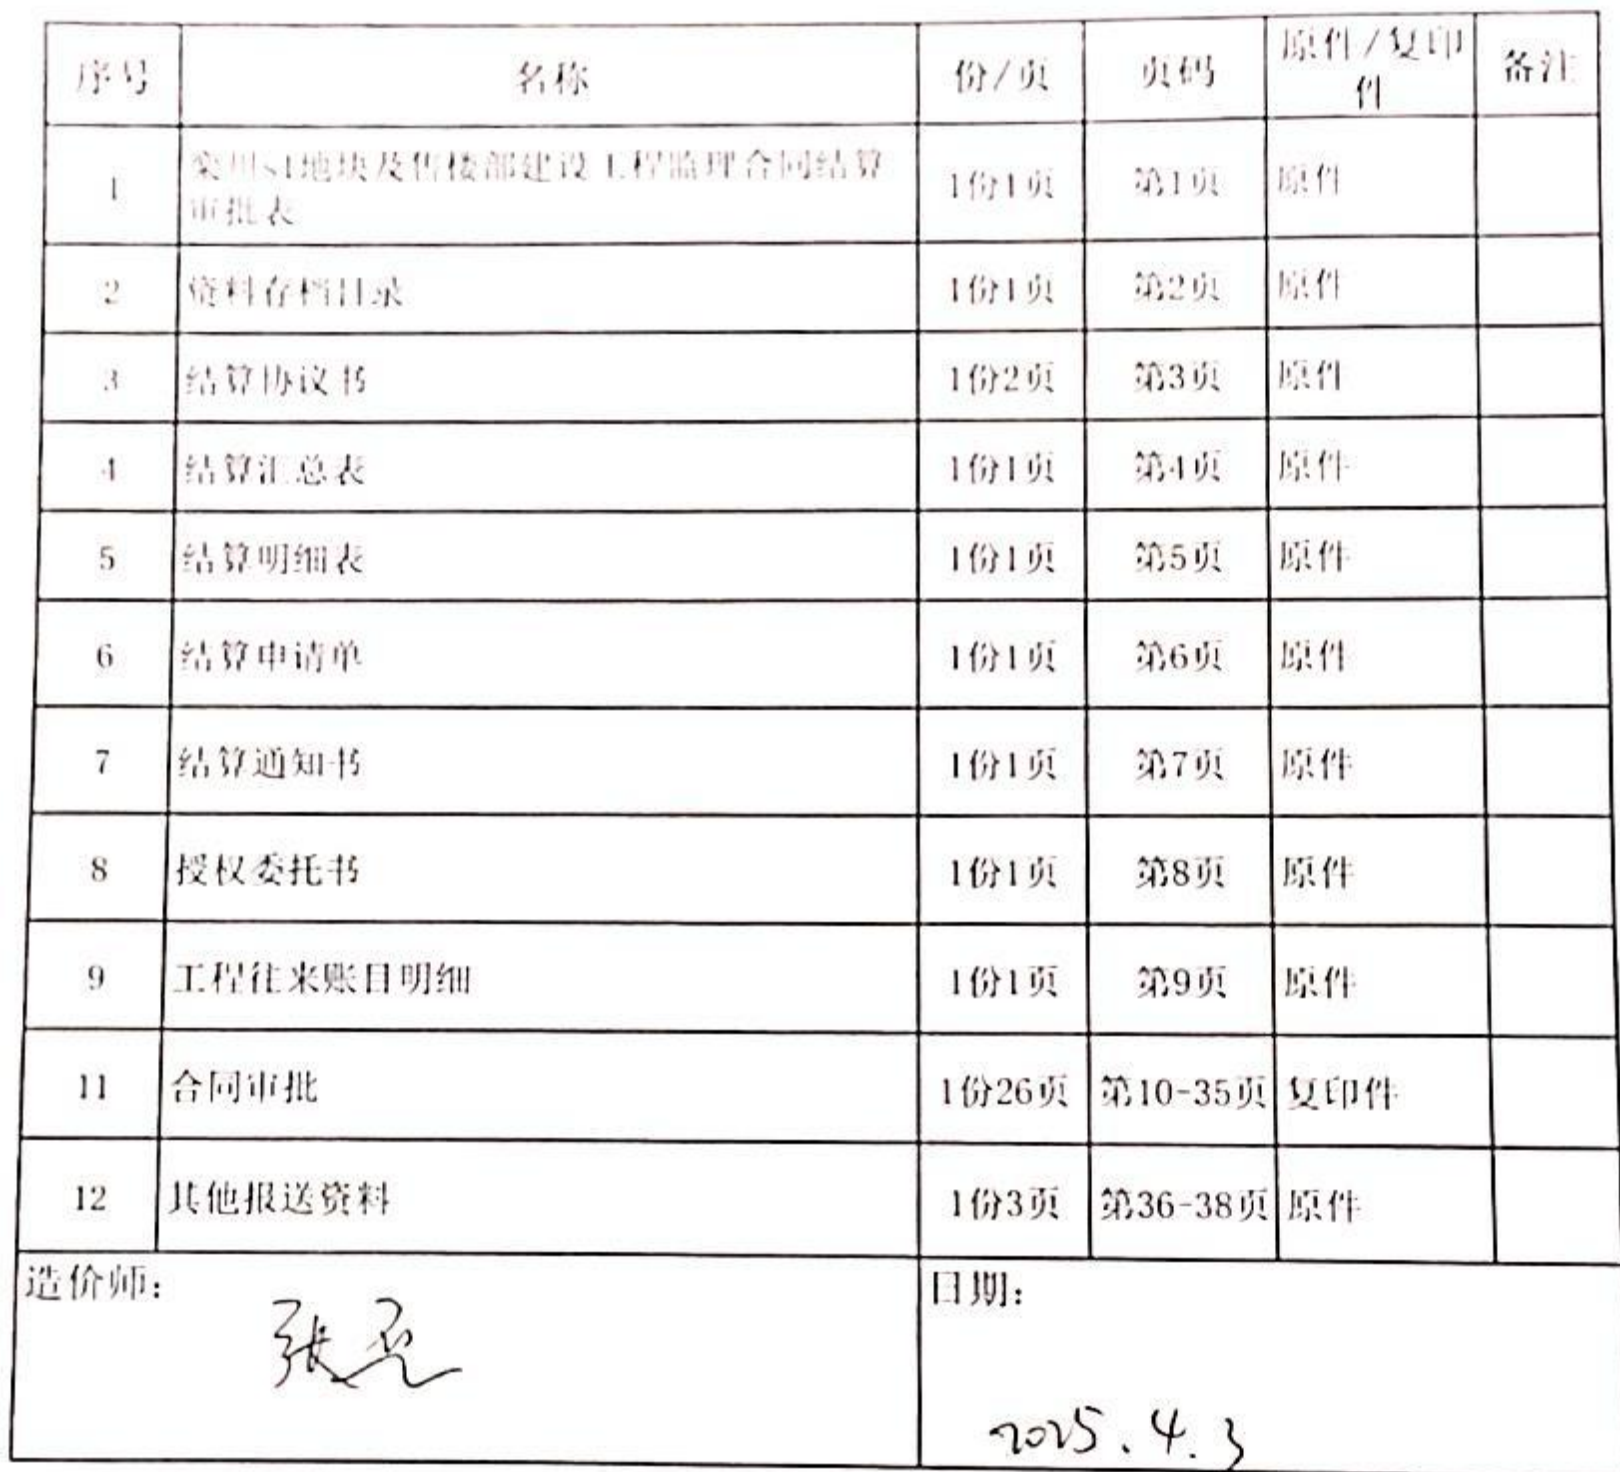 序号 名称 份/页 页码 原件/复印件 备注
1 栾川s1地块及售楼部建设工程监理合同结算 1份1页 第1页 原件
审批表
2 资料存档目录 1份1页 第2页 原件
3 结算协议书 1份2页 第3页 原件
4 结算汇总表 1份1页 第4页 原件
5 结算明细表 1份1页 第5页 原件
6 结算申请单 1份1页 第6页 原件
7 结算通知书 1份1页 第7页 原件
8 授权委托书 1份1页 第8页 原件
9 工程往来账目明细 1份1页 第9页 原件
11 合同审批 1份26页 第10-35页 复印件
12 其他报送资料 1份3页 第36-38页 原件
造价师: 日期:
张
2025.4.3